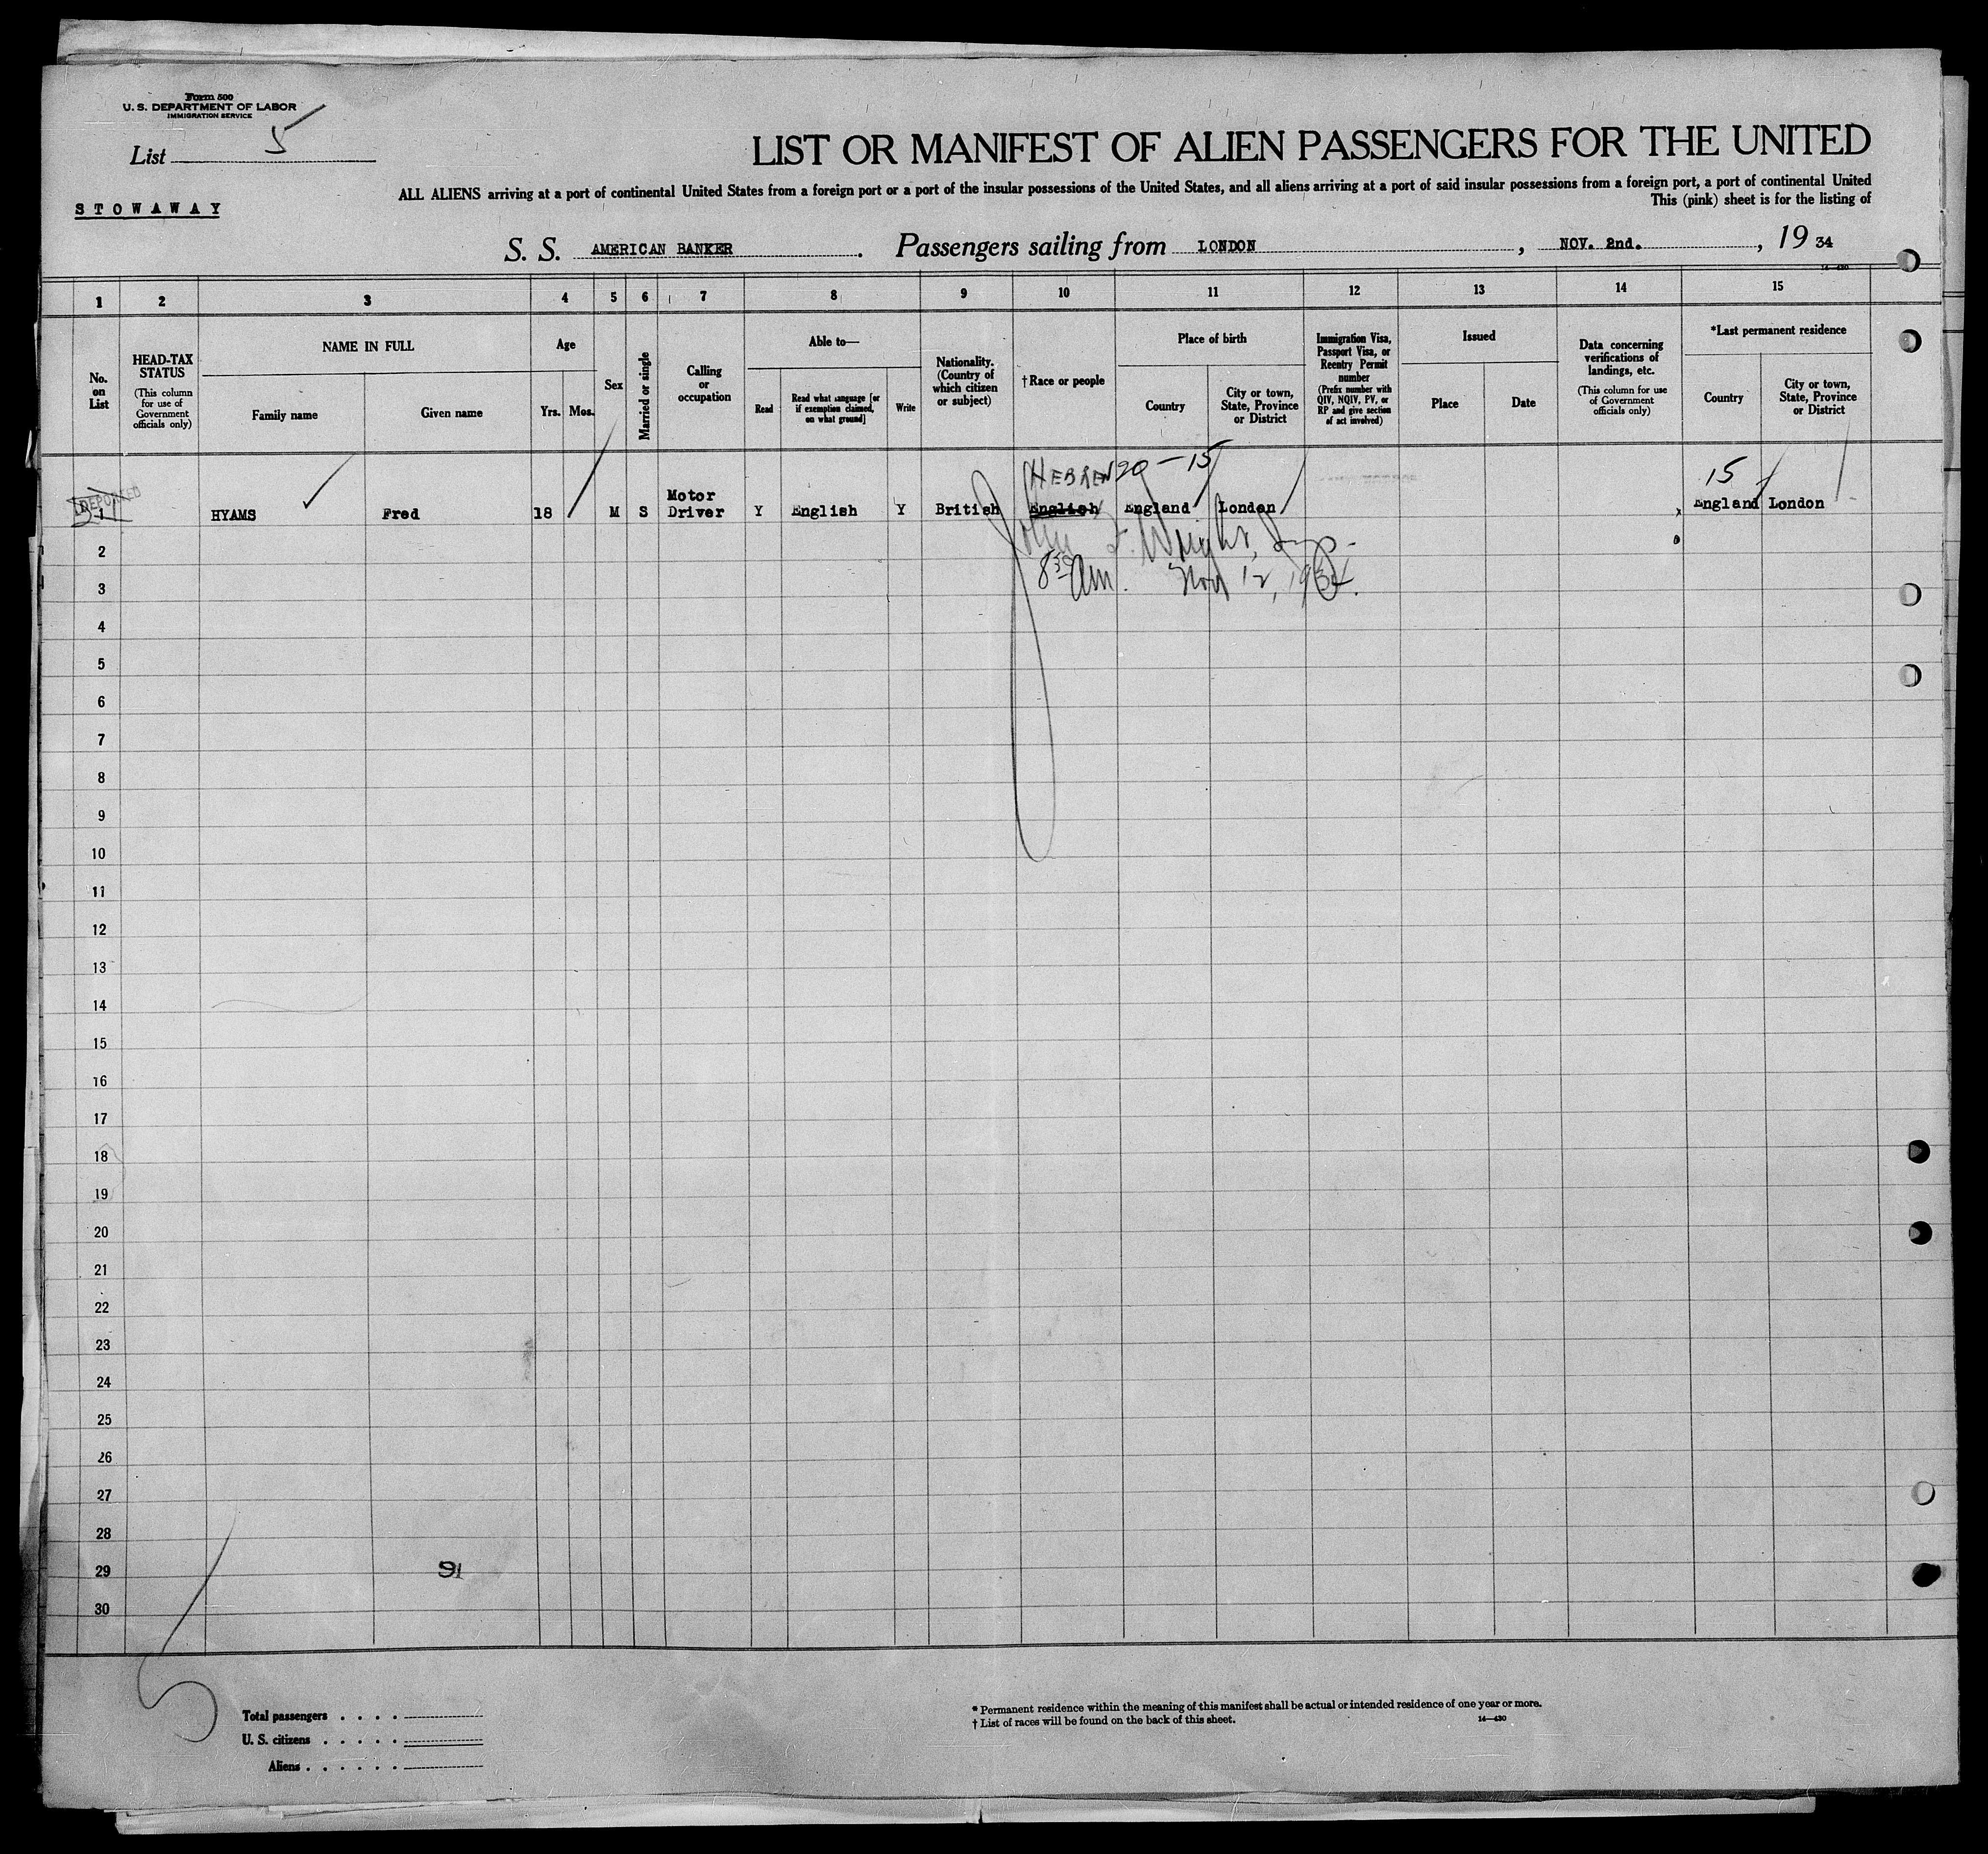 Form 500
U. S. DEPARTMENT OF LABOR
IMMIGRATION SERVICE
List 5
STOWAWAY
LIST OR MANIFEST OF ALIEN PASSENGERS FOR THE UNITED
ALL ALIENS arriving at a port of continental United States from a foreign port or a port of the insular possessions of the United States, and all aliens arriving at a port of said insular possessions from a foreign port, a port of continental United
This (pink) sheet is for the listing of
S. S. AMERICAN BANKER. Passengers sailing from LONDON, NOV. 2nd., 19 34
14—430
1 2 3 4 5 6 7 8 9 10 11 12 13 14 15
No. on List
HEAD-TAX STATUS
(This column for use of Government officials only)
NAME IN FULL
Family name
Given name
Age
Yrs. Mos.
Sex
Married or single
Calling or occupation
Able to—
Read
Read what language [or if exemption claimed, on what ground]
Write
Nationality. (Country of which citizen or subject)
†Race or people
Place of birth
Country
City or town, State, Province or District
Immigration Visa, Passport Visa, or Reentry Permit number
(Prefix number with QIV, NQIV, PV, or RP and give section of act involved)
Issued
Place
Date
Data concerning verifications of landings, etc.
(This column for use of Government officials only)
*Last permanent residence
Country
City or town, State, Province or District
HEBREW 20 - 15 15
DEPORTED
1 HYAMS Fred 18 M S Motor Driver Y English Y British English England London England London
John F. Wright, Insp.
8 30 Am. Nov 12, 1934.
2
3
4
5
6
7
8
9
10
11
12
13
14
15
16
17
18
19
20
21
22
23
24
25
26
27
28
29 91
30
Total passengers . . . .
U. S. citizens . . . . .
Aliens . . . . . .
* Permanent residence within the meaning of this manifest shall be actual or intended residence of one year or more.
† List of races will be found on the back of this sheet.
14—430